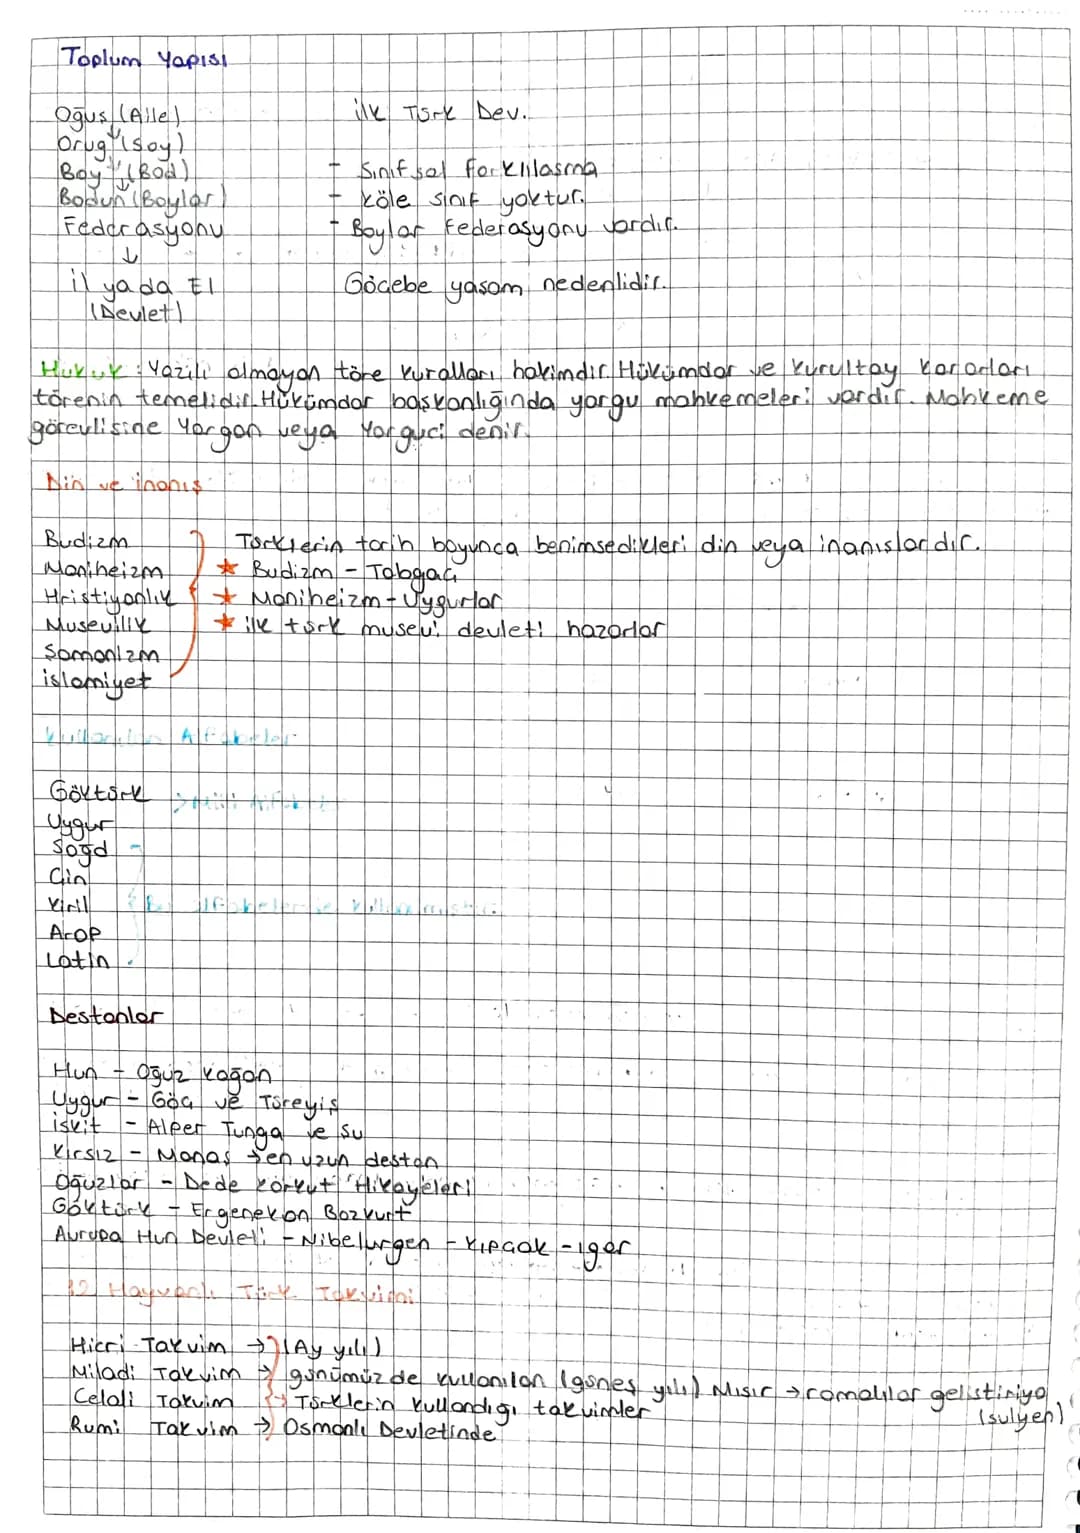 Toplum Yapısı
Oğuş (Aile)
Orug (Soy)
Boy (Bod)
Bodun (Boylar)
Federasyonu
il ya da El
(Devlet)
ilk Türk Dev.
- Sınıfsal farklılaşma
- köle sınıf yoktur.
- Boylar Federasyonu vardır.
Göçebe yaşam nedenlidir.
Hukuk: Yazılı olmayan töre kuralları hakimdir. Hükümdar ve Kurultay kararları
törenin temelidir. Hükümdar başkanlığında yargu mahkemeleri vardır. Mahkeme
görevlisine Yargan veya Yarguci denir.
Din ve inanış
Budizm
Maniheizm
Hristiyanlık
Musevilik
Şamanizm
islamiyet
Türklerin tarih boyunca benimsedikleri din veya inanışlardır.
★ Budizm - Tabgaç
★ Maniheizm - Uygurlar
★ ilk türk musevi devleti hazarlar
Kullanılan Alfabeler
Göktürk > Milli Alfabe
Uygur
Soğd
Çin
Kiril
Arap
Latin
Bu alfabeler de kullanmıştır.
Destanlar
Hun - Oğuz Kağan
Uygur - Göç ve Türeyiş
iskit - Alper Tunga ve Şu
Kırgız - Manas → en uzun destan
Oğuzlar - Dede Korkut Hikayeleri
Göktürk - Ergenekon Bozkurt
Avrupa Hun Devleti - Nibelurgen - Kıpçak - igor
12 Hayvanlı Türk Takvimi
Hicri Takvim → (Ay yılı)
Miladi Takvim → günümüzde kullanılan (güneş yılı) Mısır → romalılar geliştiriyo
(sulyen)
Celali Takvim → Türklerin kullandığı takvimler
Rumi Takvim → Osmanlı Devletinde